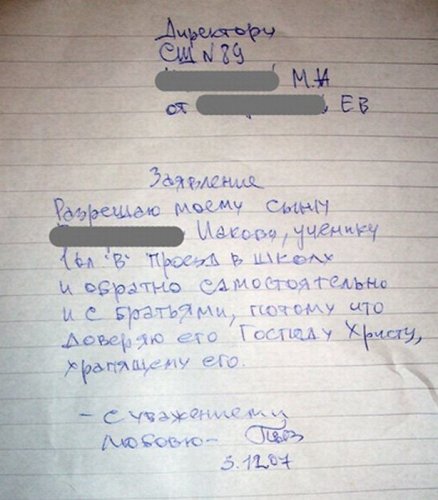 Директору
СШ N 89
М.И
от ЕВ
Заявление
Разрешаю моему сыну
Иакову, ученику
1 кл "В" проезд в школу
и обратно самостоятельно
и с братьями, потому что
доверяю его Господу Христу,
хранящему его.
- с уважением и
любовью -
3.12.07